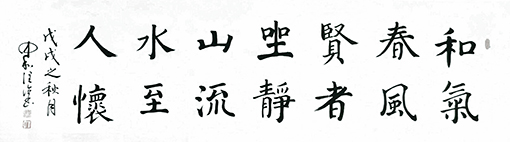 和氣
春風
賢者
坐靜
山流
水至
人懷
戊戌之秋月